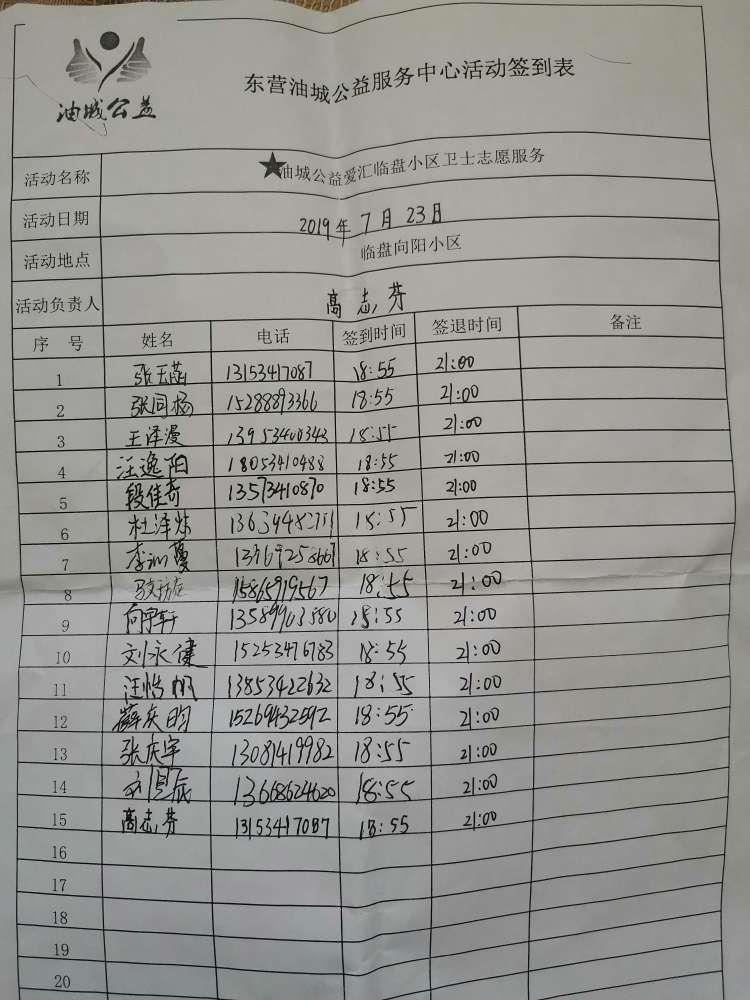 油城公益
东营油城公益服务中心活动签到表
活动名称 ★油城公益爱汇临盘小区卫士志愿服务
活动日期 2019年7月23日
活动地点 临盘向阳小区
活动负责人 高志芬
序号 姓名 电话 签到时间 签退时间 备注
1 张玉茜 13153417087 18:55 21:00
2 张同杨 15288893366 18:55 21:00
3 王泽漫 13953400343 18:55 21:00
4 汪逸阳 18053410488 18:55 21:00
5 段佳奇 13573410870 18:55 21:00
6 杜泽炜 18:55 21:00
7 18:55 21:00
8 15865919567 18:55 21:00
9 向宇轩 13589903580 18:55 21:00
10 刘永健 15253476783 18:55 21:00
11 汪怡帆 13853422632 18:55 21:00
12 薛庆昀 15269432592 18:55 21:00
13 张庆宇 13081419982 18:55 21:00
14 13668624620 18:55 21:00
15 高志芬 13153417087 18:55 21:00
16
17
18
19
20